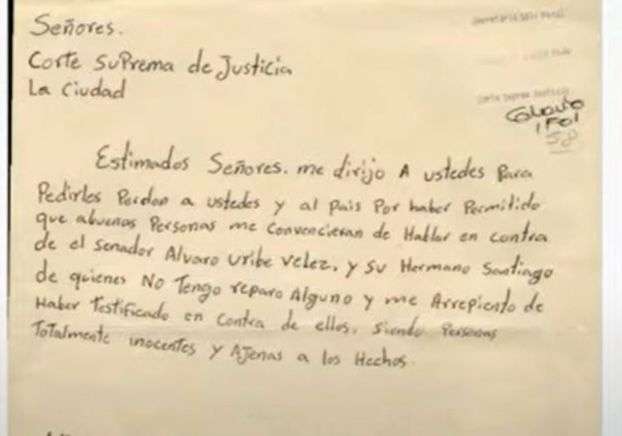 Señores.
Corte Suprema de Justicia
La Ciudad
1 Fol
Estimados Señores. me dirijo A ustedes Para
Pedirles Perdon a ustedes y al Pais Por haber Permitido
que abuenas Personas me Convencieran de Hablar en contra
de el Senador Alvaro Uribe Velez, y su Hermano Santiago
de quienes No Tengo reparo Alguno y me Arrepiento de
Haber Testificado en Contra de ellos, siendo Personas
Totalmente inocentes y Ajenas a los Hechos.